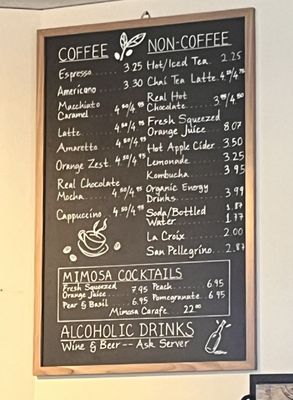 COFFEE
Espresso 3.25
Americano 3.30
Macchiato
Caramel 4.50/4.95
Latte 4.50/4.95
Amaretto 4.50/4.95
Orange Zest 4.50/4.95
Real Chocolate
Mocha 4.50/4.95
Cappuccino 4.50/4.95
NON-COFFEE
Hot/Iced Tea 2.25
Chai Tea Latte 4.25/4.75
Real Hot
Chocolate 3.95/4.50
Fresh Squeezed
Orange Juice 8.07
Hot Apple Cider 3.50
Lemonade 3.25
Kombucha 3.95
Organic Energy
Drinks 3.99
Soda/Bottled 1.87
Water 1.77
La Croix 2.00
San Pellegrino 2.87
MIMOSA COCKTAILS
Fresh Squeezed
Orange Juice 7.95
Pear & Basil 6.95
Peach 6.95
Pomegranate 6.95
Mimosa Carafe 22.00
ALCOHOLIC DRINKS
Wine & Beer -- Ask Server